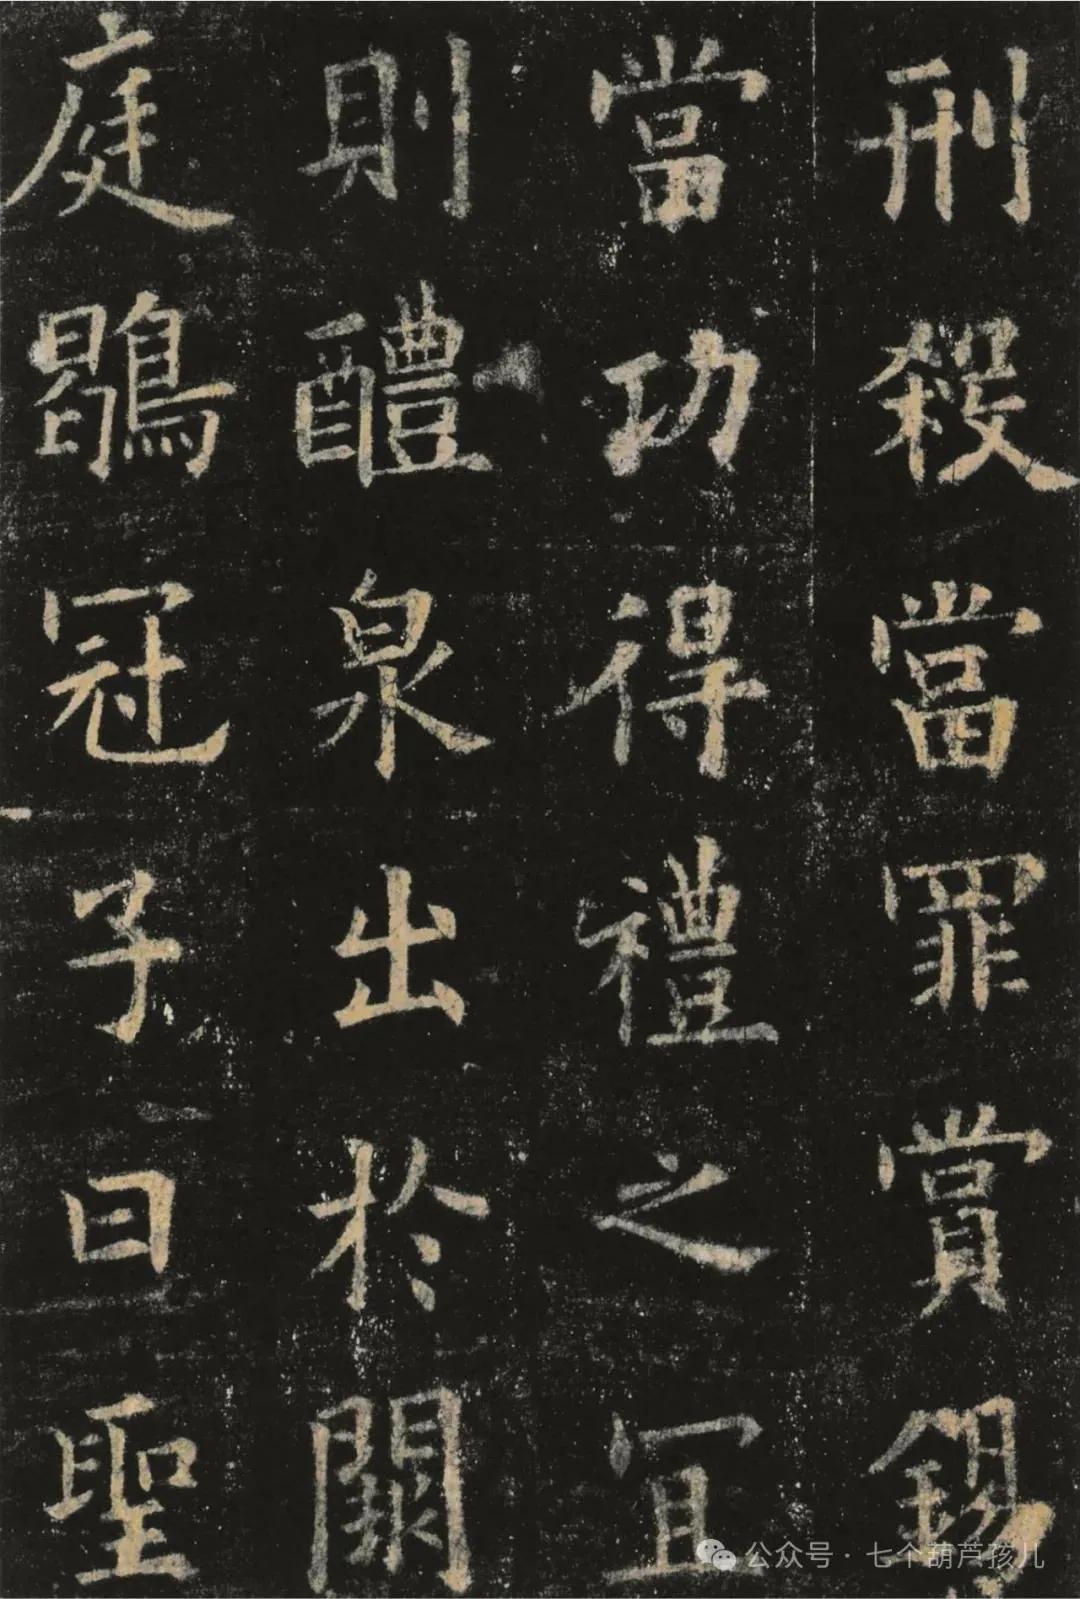 刑殺當罪賞錫
當功得禮之宜
則醴泉出於闕
庭鶡冠子曰聖
公众号·七个葫芦孩儿